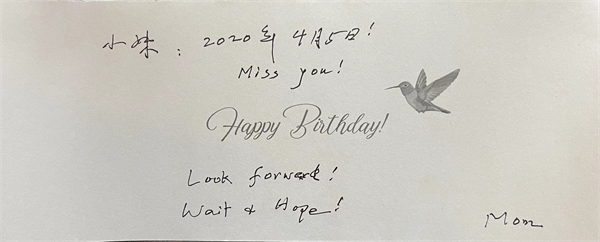 小妹: 2020年4月5日!
Miss you!
Happy Birthday!
Look forward!
Wait & Hope!
Mom